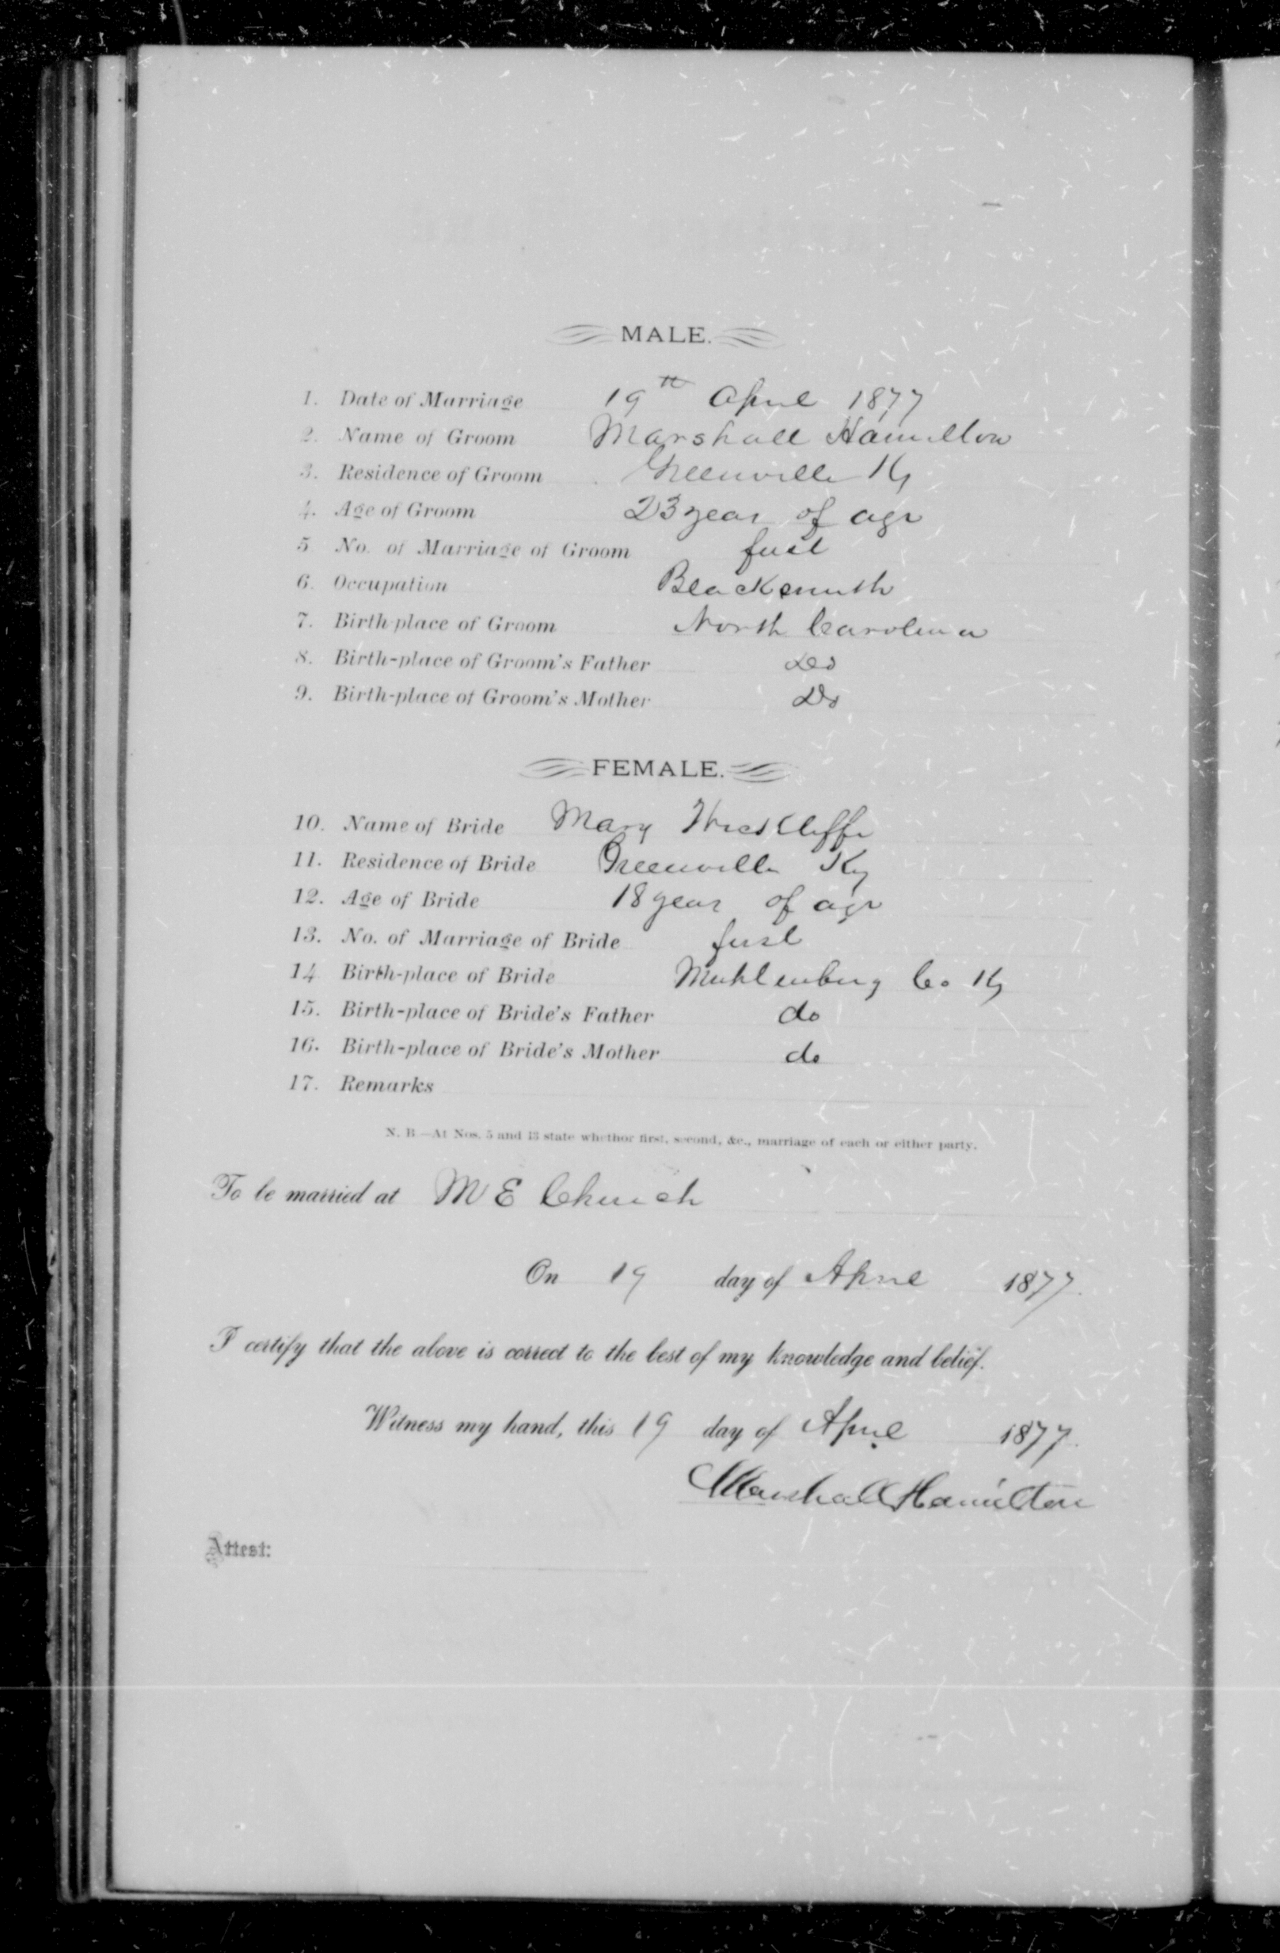 MALE.
1. Date of Marriage 19th April 1877
2. Name of Groom Marshall Hamilton
3. Residence of Groom Greenville Ky
4. Age of Groom 23 year of age
5 No. of Marriage of Groom first
6. Occupation Blacksmith
7. Birth place of Groom North Carolina
8. Birth-place of Groom's Father Do
9. Birth-place of Groom's Mother Do
FEMALE.
10. Name of Bride Mary
11. Residence of Bride Greenville Ky
12. Age of Bride 18 year of age
13. No. of Marriage of Bride first
14 Birth-place of Bride Muhlenberg Co Ky
15. Birth-place of Bride's Father do
16. Birth-place of Bride's Mother do
17. Remarks
N. B.—At Nos. 5 and 13 state whether first, second, &c., marriage of each or either party.
To be married at M E Church
On 19 day of April 1877.
I certify that the above is correct to the best of my knowledge and belief.
Witness my hand, this 19 day of April 1877.
Marshall Hamilton
Attest: